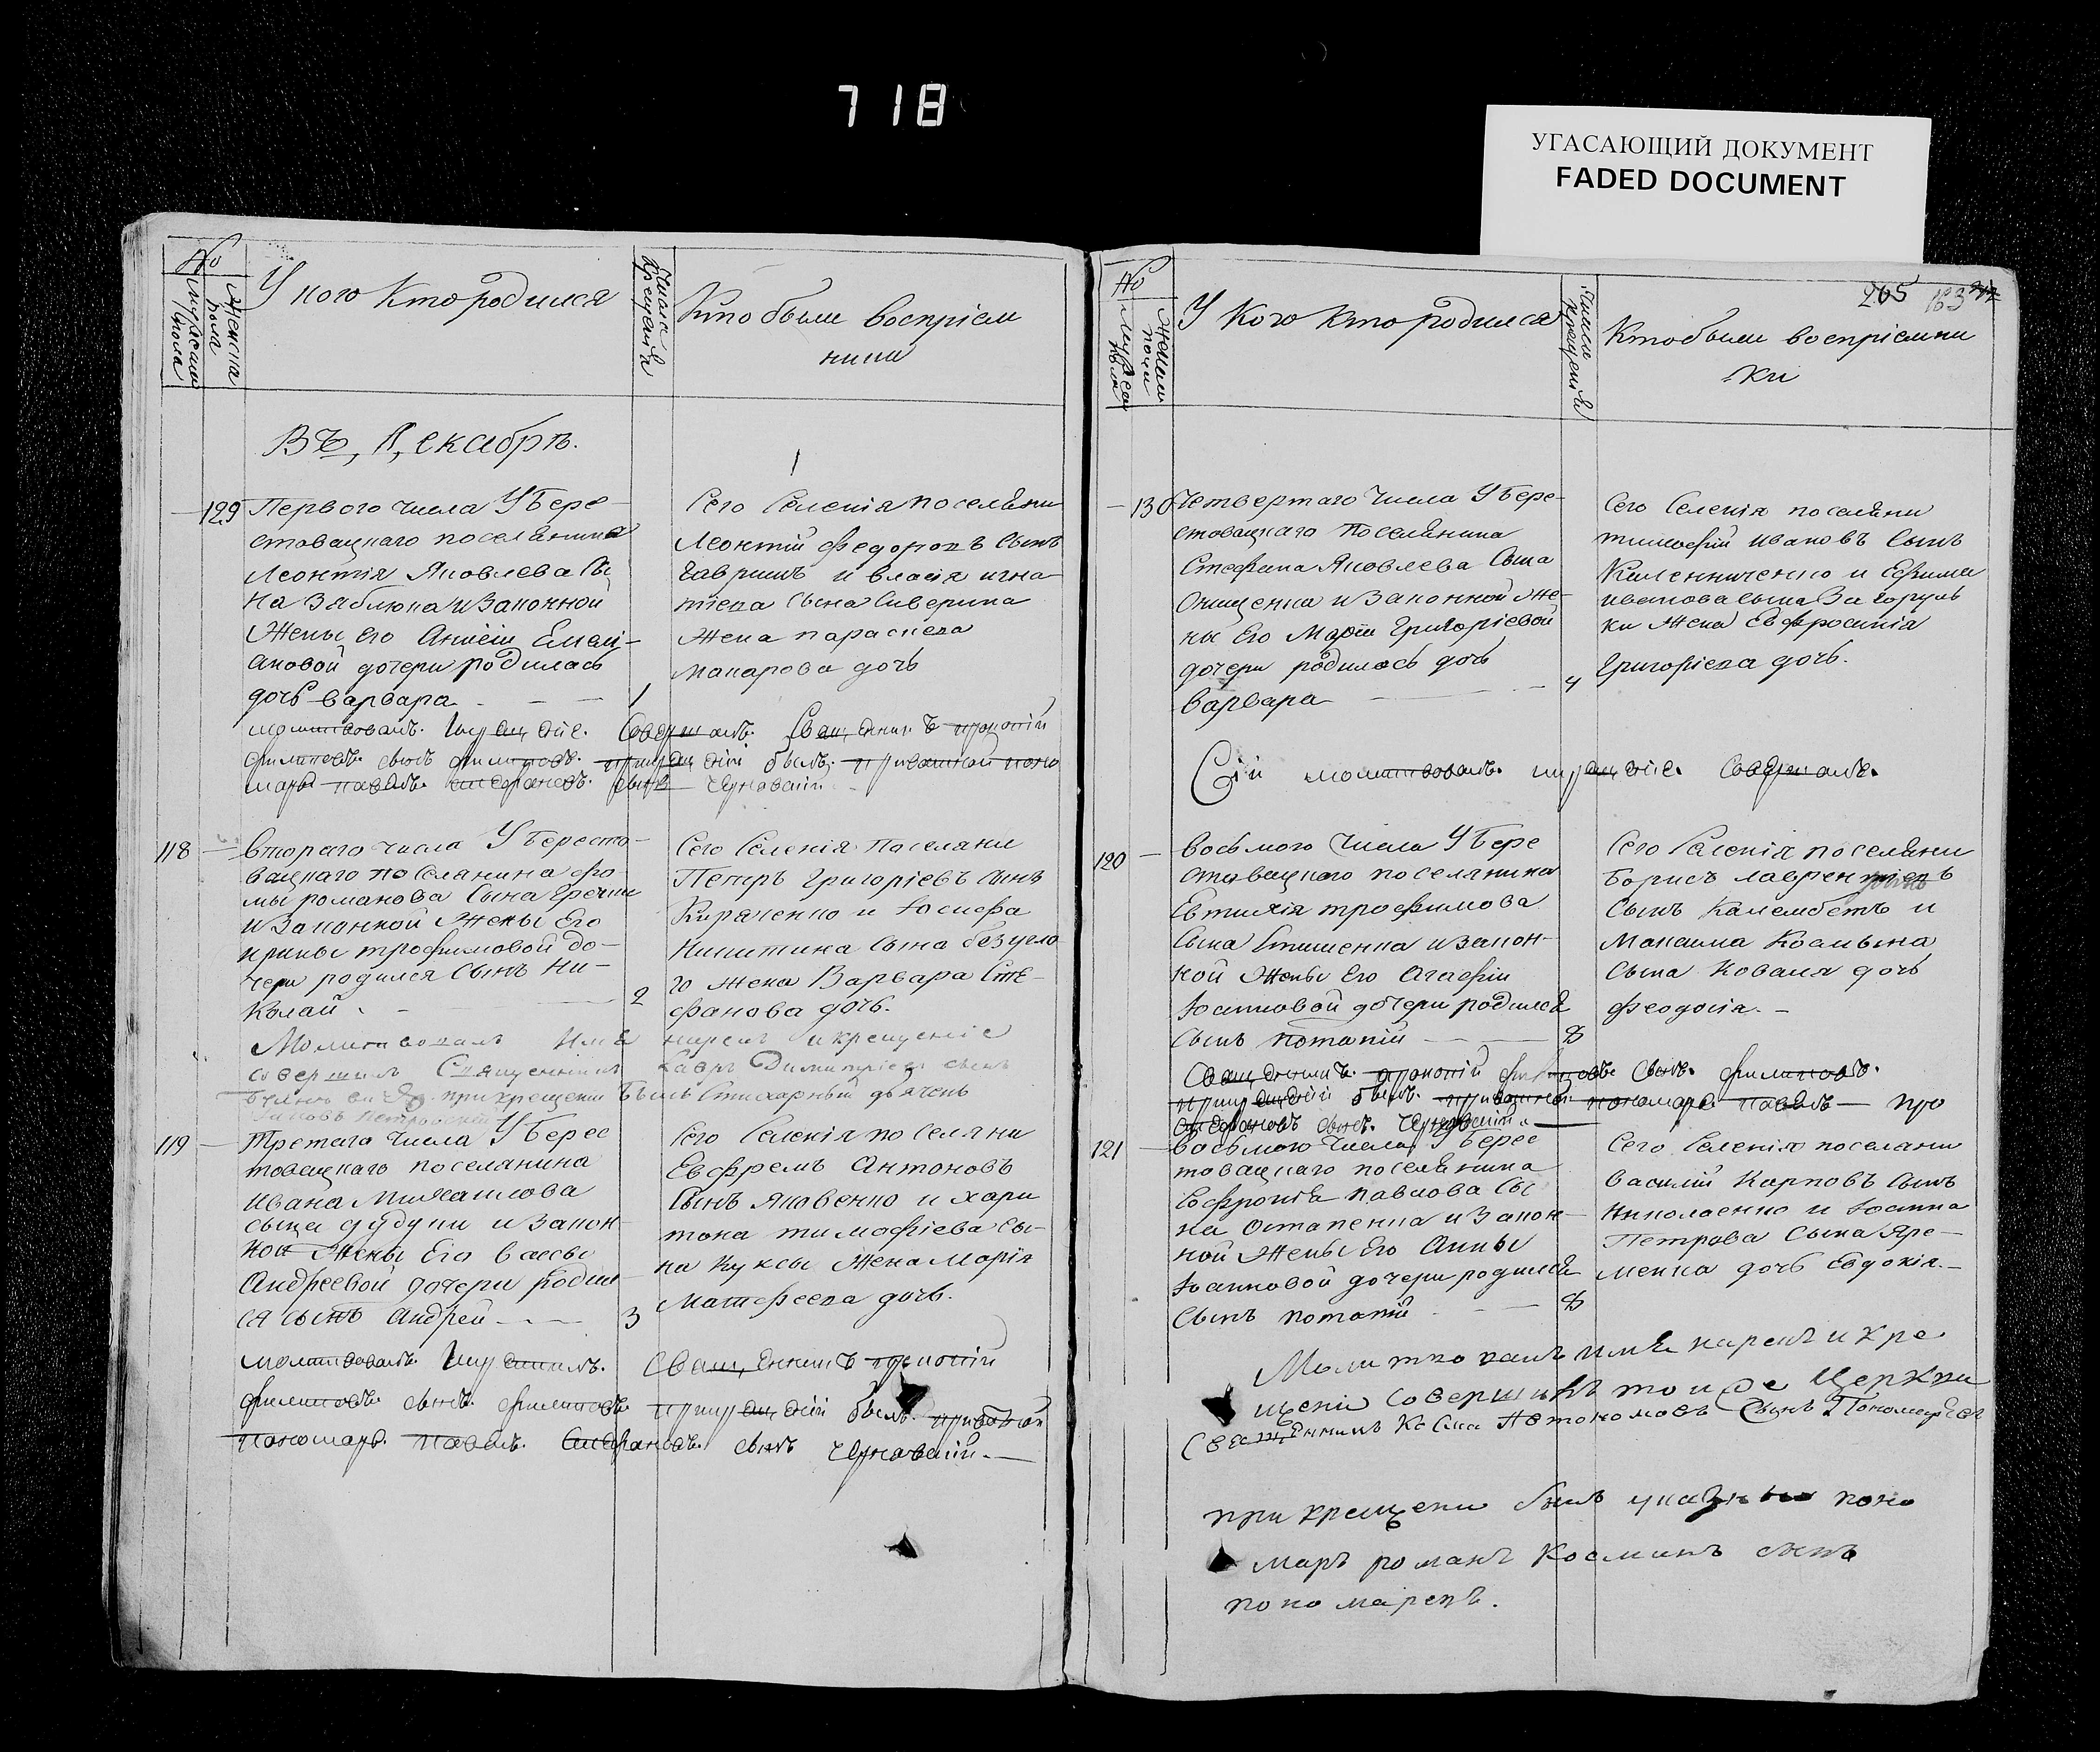 718
УГАСАЮЩИЙ ДОКУМЕНТ
FADED DOCUMENT
№
Мужеска пола
Женска пола
У кого кто родился
Числа крещенія
Кто были воспріем
ники
Въ, Декабрѣ.
129
Первого числа У Бере-
стовацкаго поселянина
Леонтія Яковлева Сы
на Зяблюка и Законной
Жены Его Емели-
яновой дочери родилась
дочь варвара
1
Сего Селенія поселяни
Леонтій Федоровъ Сынъ
и власія игна
тіева Сына Сиверина
Жена параскева
макарова дочь
молитвовалъ. Совершалъ. Священникъ прокопій
филиповъ. сынъ филиповъ. былъ.
павелъ. сынъ
118
Втораго числа У Бересто-
вацкаго поселянина фо
мы романова Сына Гречки
и Законной Жены Его
ирины трофимовой до-
чери родился Сынъ Ни-
колай
2
Сего Селенія Поселяни
Петръ Григоріевъ Сынъ
Киряченко и Іосифа
Никитина Сына безугло
го жена Варвара Сте-
фанова дочь.
Молитвовалъ Имя нареклъ и крещеніе
совершилъ Священникъ Димитріевъ сынъ
при крещеніи былъ Стихарный дьячекъ
119
Третаго числа У Берес
товацкаго поселянина
Ивана Михаилова
сына дудуки и Закон
ной Жены Его васы
Андреевой дочери родил
ся сынъ Андрей
3
Сего Селенія поселяни
Евфремъ Антоновъ
Сынъ Яковенко и хари
тона тимофіева Сы-
на Куксы Жена Марія
Матфеева дочь.
молитвовалъ. Священникъ прокопій
филиповъ. сынъ. филиповъ. былъ.
пономарь. павелъ. сынъ
№
У Кого кто родился
Числа крещенія
205 183
Кто были воспріемни
ки
130
Четвертаго числа У Бере-
стовацкаго Поселянина
Стефана Яковлева Сына
Онищенка и Законной Же-
ны Его Маріи Григоріевой
дочери родилась дочь
варвара
4
Сего Селенія поселяни
тимофій Ивановъ Сынъ
Каленниченко и Ефима
иванова сына Загоруль
ки Жена Евфросинія
Григоріева дочь.
Сій молитвовалъ. Совершалъ.
120
восьмого Числа У Бере
стовацкаго поселянина
Евтихія трофимова
Сына Стишенка и закон-
ной Жены Его Агафіи
Іоанновой дочери родился
сынъ потапій
8
Сего Селенія поселяни
Борисъ лаврентіевъ
Сынъ Калембетъ и
Максима Космына
сына Коваля дочь
феодосія.-
Священникъ. прокопій филиповъ сынъ. филиповъ.
былъ. пономарь. павелъ
сынъ.
121
восьмого числа У Берес
товацкаго поселянина
Софронія павлова Сы
на Остапенка и Закон-
ной Жены Его Анны
Іоанновой дочери родился
Сынъ потапій
8
Сего Селенія поселяни
василій Карповъ Сынъ
Николаенко и Іоанна
Петрова Сына Яре-
менка дочь Евдокія.-
Молитвовалъ имя нареклъ и кре
щеніе совершилъ тои же Церкви
Священникъ Косма Автономовъ Сынъ Пономаревъ
при крещеніи былъ указный поно
марь романъ Косминъ сынъ
пономаревъ.